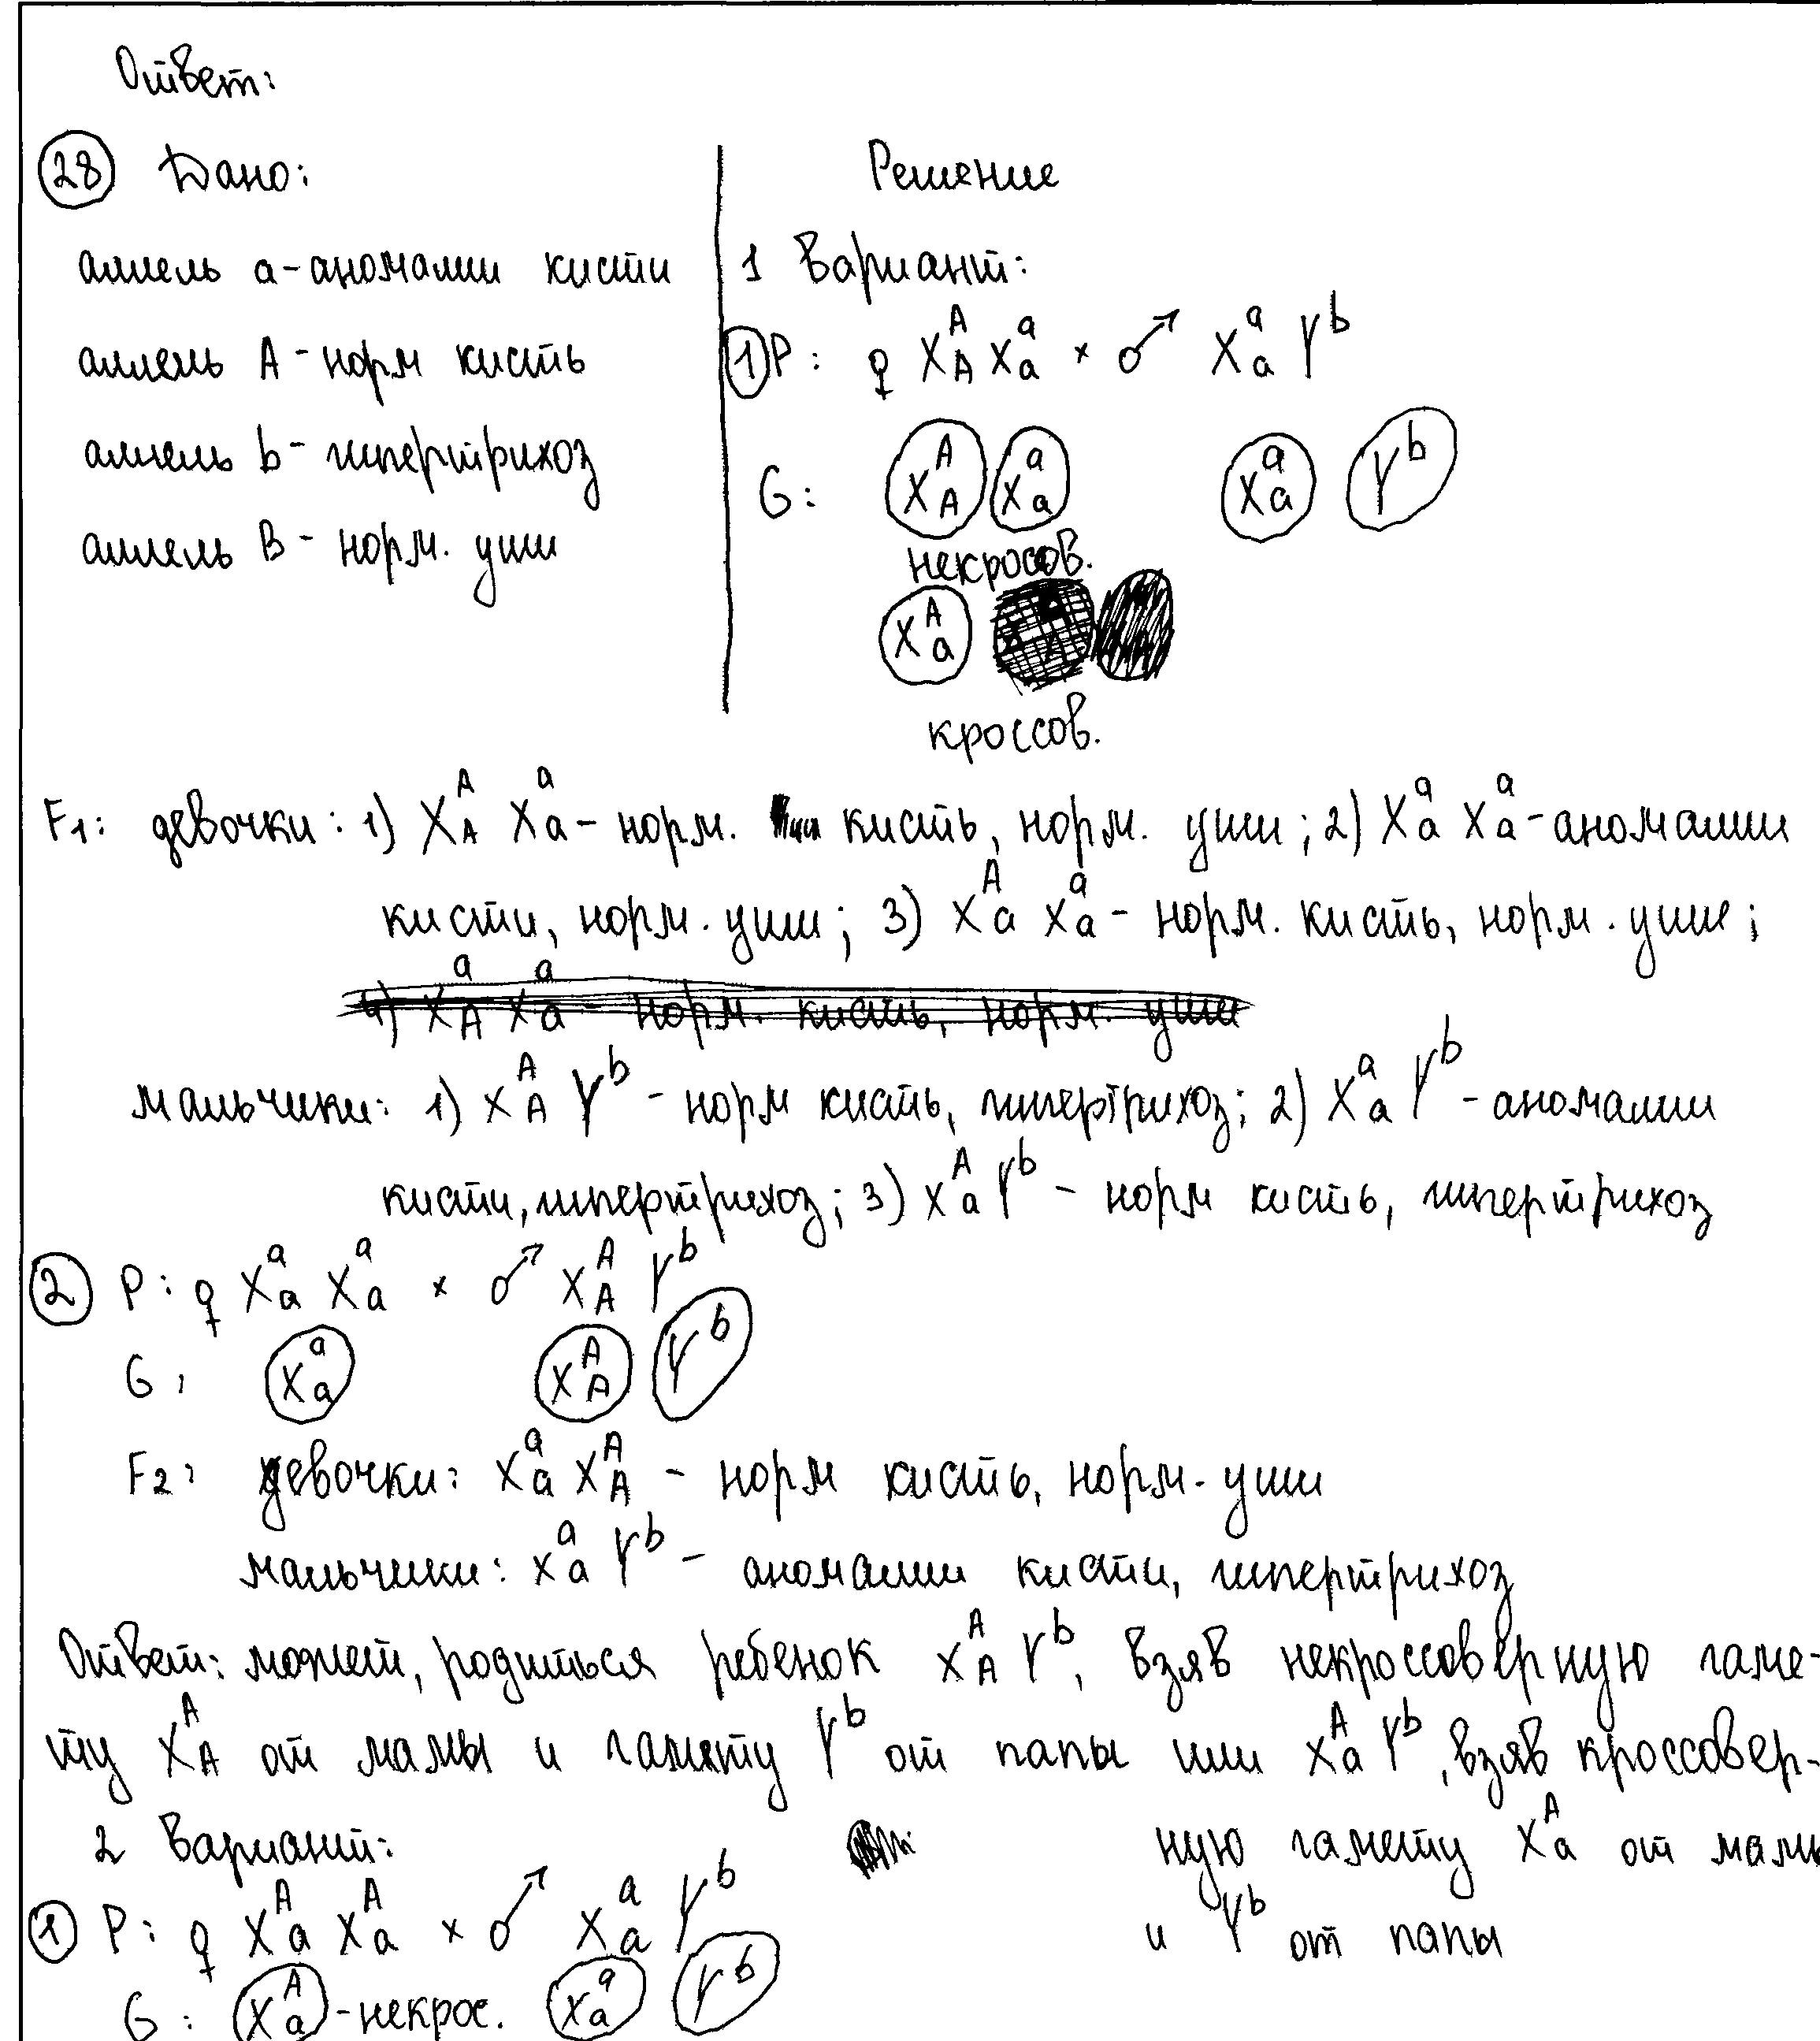 Ответ:
(28) Дано:
Решение
аллель a - аномалии кисти
аллель A - норм кисть
аллель b - гипертрихоз
аллель B - норм. уши
1 Вариант:
(1) P: ♀ X^A_A X^a_a × ♂ X^a_a Y^b
G: X^A_A X^a_a X^a_a Y^b
некросов.
X^A_a
кроссов.
F1: девочки: 1) X^A_A X^a_a - норм. кисть, норм. уши; 2) X^a_a X^a_a - аномалии
кисти, норм. уши; 3) X^A_a X^a_a - норм. кисть, норм. уши;
4) X^a_A X^a_a - норм. кисть, норм. уши
мальчики: 1) X^A_A Y^b - норм кисть, гипертрихоз; 2) X^a_a Y^b - аномалии
кисти, гипертрихоз; 3) X^A_a Y^b - норм кисть, гипертрихоз
(2) P: ♀ X^a_a X^a_a × ♂ X^A_A Y^b
G: X^a_a X^A_A Y^b
F2: девочки: X^a_a X^A_A - норм кисть, норм. уши
мальчики: X^a_a Y^b - аномалии кисти, гипертрихоз
Ответ: может, родиться ребенок X^A_A Y^b, взяв некроссоверную гаме-
ту X^A_A от мамы и гамету Y^b от папы или X^A_a Y^b, взяв кроссовер-
ную гамету X^A_a от мамы
и Y^b от папы
2 Вариант:
(1) P: ♀ X^A_a X^A_a × ♂ X^a_a Y^b
G: X^A_a - некрос. X^a_a Y^b